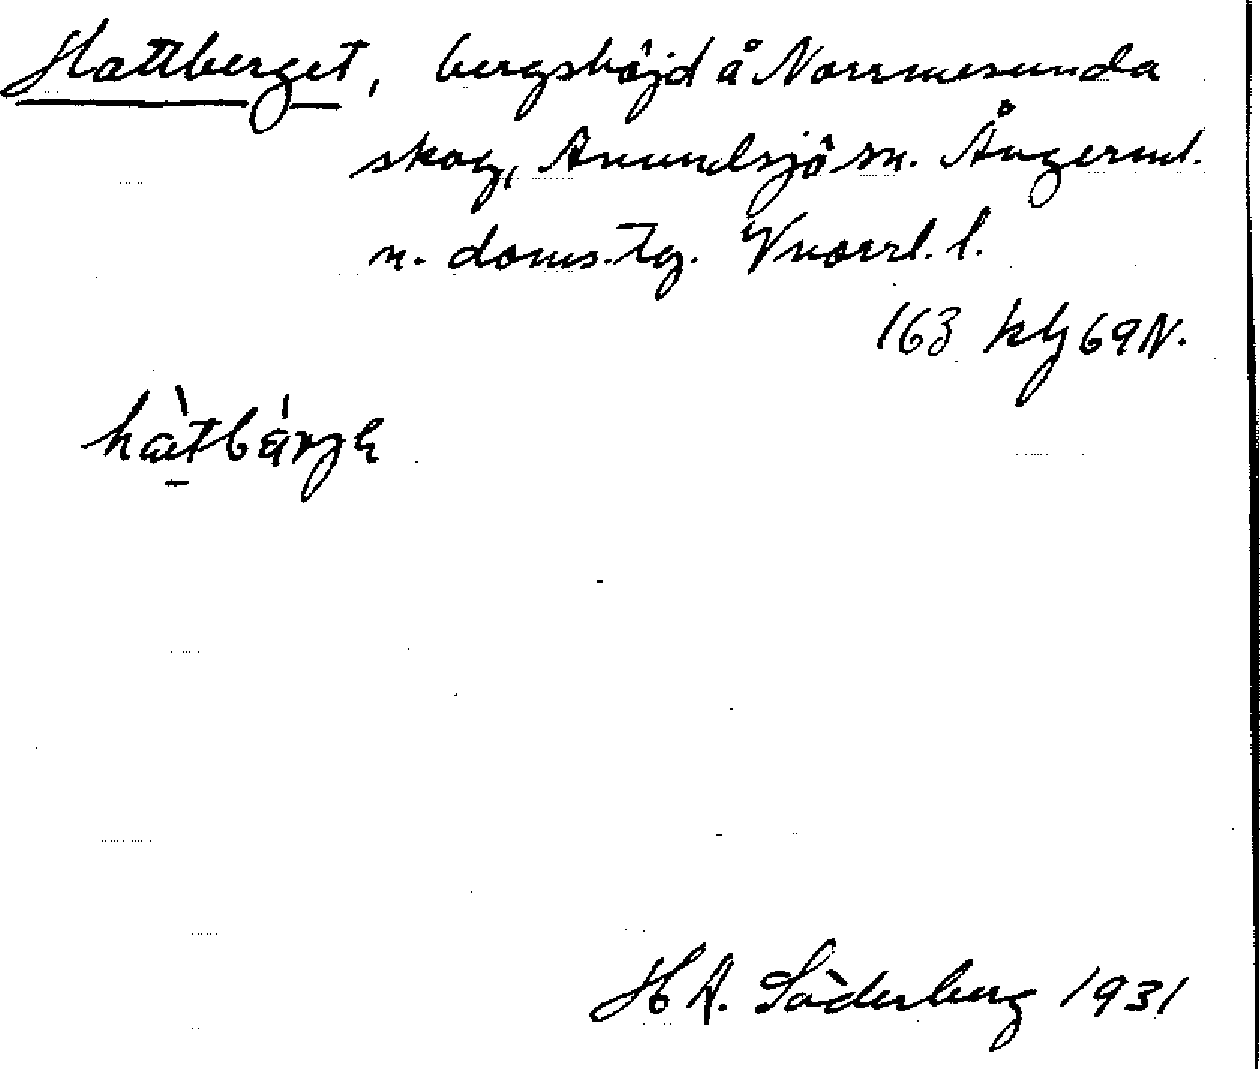 Hattberget, bergshöjd å Norrmesunda
skog, Anundsjö sn. Ångerml.
n. doms.tg. Vnorrl. l.
163 klj 69 N.
hàtbárjɛ
H A. Söderberg 1931